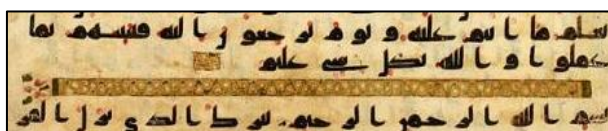 يعلم ما انتم عليه و يوم يرجعون اليه فينبئهم بما
عملوا و الله بكل شي عليم
بسم الله الرحمن الرحيم تبرك الذي نزل الفر